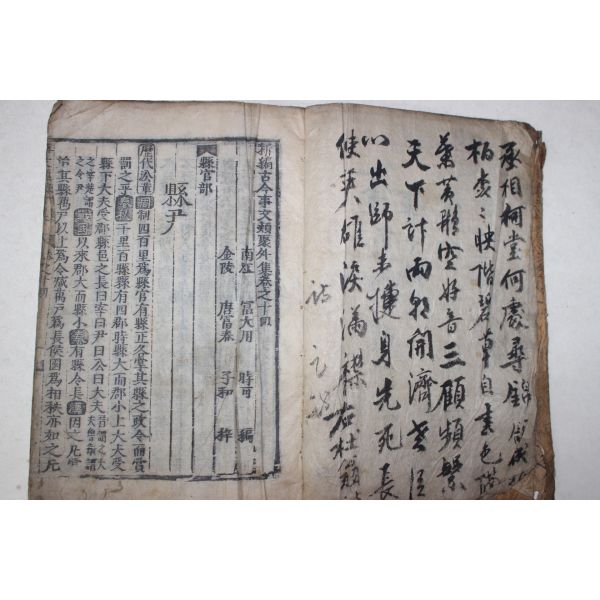 丞相祠堂何處尋錦官城外
柏森ミ映階碧草自春色隔
葉黃鸝空好音三顧頻繁
天下計兩朝開濟老臣
心出師未捷身先死長
使英雄淚滿襟右杜
詩
新編古今事文類聚外集卷之十四
南江 富大用 時可 編
金陵 唐富春 子和 梓
縣官部
縣尹
歷代沿革周制四百里爲縣官有縣正各掌其縣之政令而賞
罰之乎春秋千里百縣縣有四郡時縣大而郡小上大夫受
縣下大夫受郡縣邑之長曰宰曰尹曰公曰大夫晉謂之大夫魯謂
之宰楚謂之令尹以來郡大而縣小秦有縣令長漢因之凡
其縣萬戶以上爲令減萬戶爲長侯國爲相秩亦如之凡